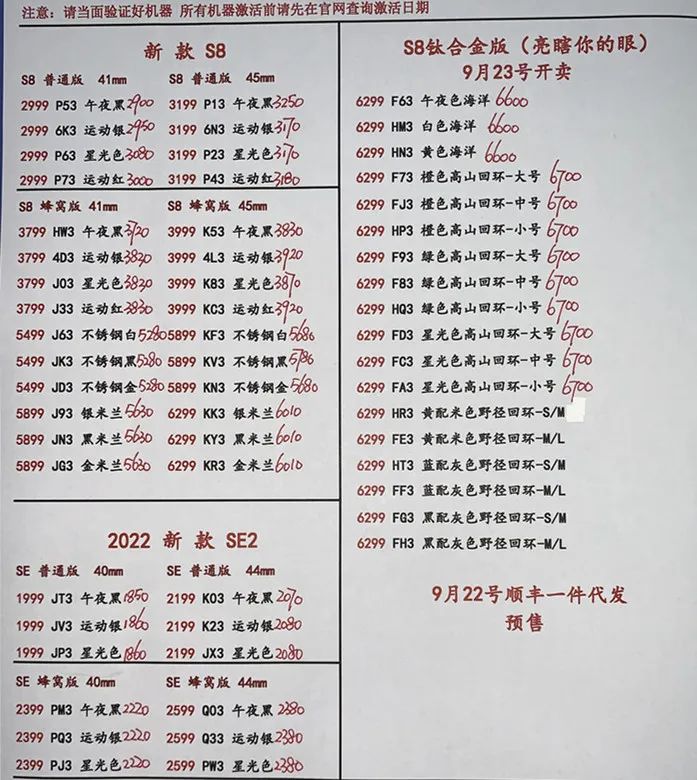 注意：请当面验证好机器 所有机器激活前请先在官网查询激活日期
新 款 S8
S8 普通版 41mm
2999 P53 午夜黑2900
2999 6K3 运动银2950
2999 P63 星光色3080
2999 P73 运动红3000
S8 普通版 45mm
3199 P13 午夜黑3250
3199 6N3 运动银3170
3199 P23 星光色3170
3199 P43 运动红3180
S8 蜂窝版 41mm
3799 HW3 午夜黑3720
3799 4D3 运动银3820
3799 J03 星光色3820
3799 J33 运动红3830
5499 J63 不锈钢白5280
5499 JK3 不锈钢黑5280
5499 JD3 不锈钢金5280
5899 J93 银米兰5630
5899 JN3 黑米兰5630
5899 JG3 金米兰5630
S8 蜂窝版 45mm
3999 K53 午夜黑3830
3999 4L3 运动银3920
3999 K83 星光色3870
3999 KC3 运动红3920
5899 KF3 不锈钢白5680
5899 KV3 不锈钢黑5786
5899 KN3 不锈钢金5680
6299 KK3 银米兰6010
6299 KY3 黑米兰6010
6299 KR3 金米兰6010
2022 新 款 SE2
SE 普通版 40mm
1999 JT3 午夜黑1850
1999 JV3 运动银1860
1999 JP3 星光色1860
SE 普通版 44mm
2199 K03 午夜黑2070
2199 K23 运动银2080
2199 JX3 星光色2080
SE 蜂窝版 40mm
2399 PM3 午夜黑2220
2399 PQ3 运动银2220
2399 PJ3 星光色2220
SE 蜂窝版 44mm
2599 Q03 午夜黑2380
2599 Q33 运动银2380
2599 PW3 星光色2380
S8钛合金版（亮瞎你的眼）
9月23号开卖
6299 F63 午夜色海洋 6600
6299 HM3 白色海洋 6600
6299 HN3 黄色海洋 6600
6299 F73 橙色高山回环-大号 6700
6299 FJ3 橙色高山回环-中号 6700
6299 HP3 橙色高山回环-小号 6700
6299 F93 绿色高山回环-大号 6700
6299 F83 绿色高山回环-中号 6700
6299 HQ3 绿色高山回环-小号 6700
6299 FD3 星光色高山回环-大号 6700
6299 FC3 星光色高山回环-中号 6700
6299 FA3 星光色高山回环-小号 6700
6299 HR3 黄配米色野径回环-S/M
6299 FE3 黄配米色野径回环-M/L
6299 HT3 蓝配灰色野径回环-S/M
6299 FF3 蓝配灰色野径回环-M/L
6299 FG3 黑配灰色野径回环-S/M
6299 FH3 黑配灰色野径回环-M/L
9月22号顺丰一件代发
预售